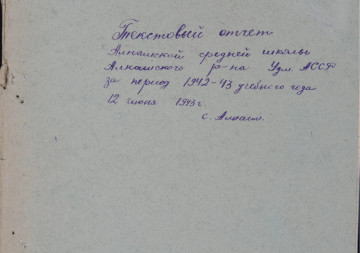 Текстовый отчет
Алнашской средней школы
Алнашского р-на Удм. АССР
за период 1942-43 учебного года
12 июня 1943 г.
с. Алнаши.